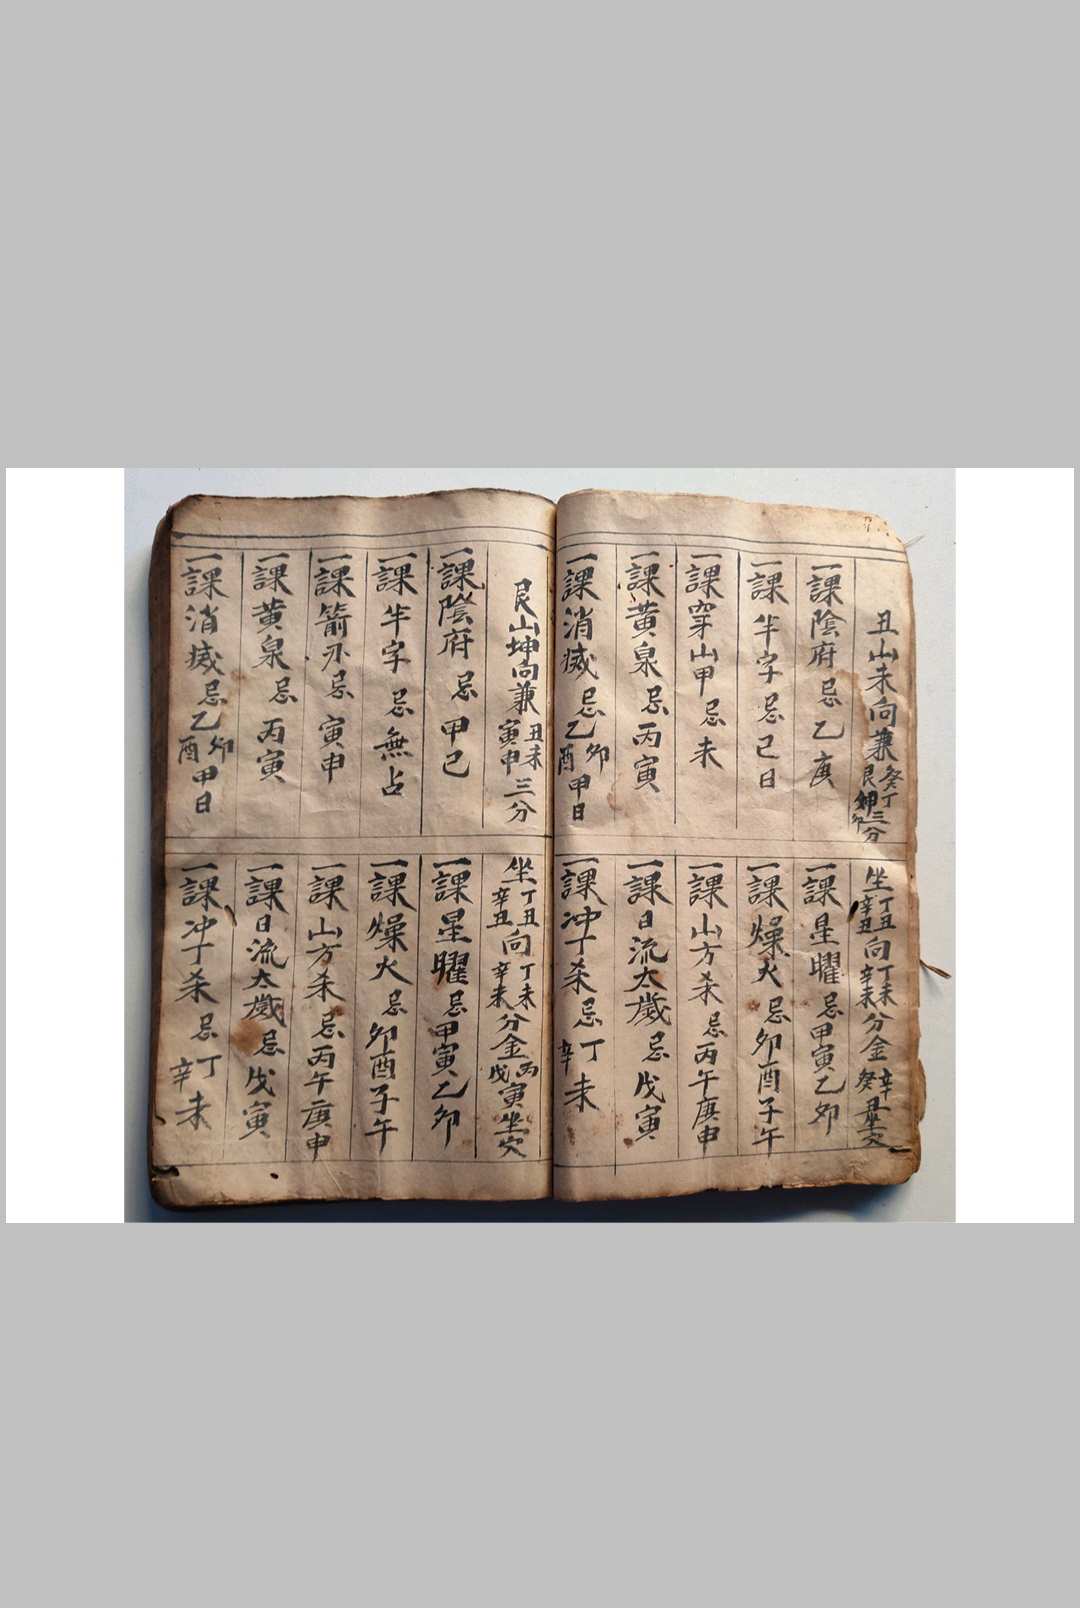 丑山未向兼癸丁艮坤三分
一課陰府忌乙庚
一課半字忌己日
一課穿山甲忌未
一課黄泉忌丙寅
一課消滅忌乙卯酉甲日
坐丁丑辛丑向丁未辛未分金辛癸丑坐穴
一課星曜忌甲寅乙卯
一課燥火忌卯酉子午
一課山方杀忌丙午庚申
一課日流太歲忌戊寅
一課冲丁杀忌丁辛未
艮山坤向兼丑未寅申三分
一課陰府忌甲己
一課半字忌無占
一課箭刃忌寅申
一課黄泉忌丙寅
一課消滅忌乙卯酉甲日
坐丁丑辛丑向丁未辛未分金丙戊寅坐穴
一課星曜忌甲寅乙卯
一課燥火忌卯酉子午
一課山方杀忌丙午庚申
一課日流太歲忌戊寅
一課冲丁杀忌丁辛未